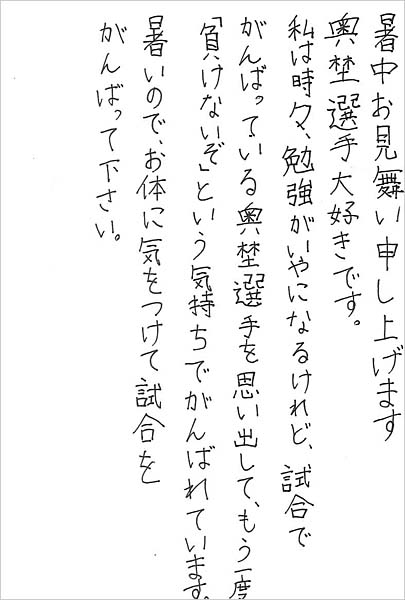 暑中お見舞い申し上げます
奥埜選手大好きです。
私は時々、勉強がいやになるけれど、試合で
がんばっている奥埜選手を思い出して、もう一度
「負けないぞ」という気持ちでがんばれています。
暑いので、お体に気をつけて試合を
がんばって下さい。